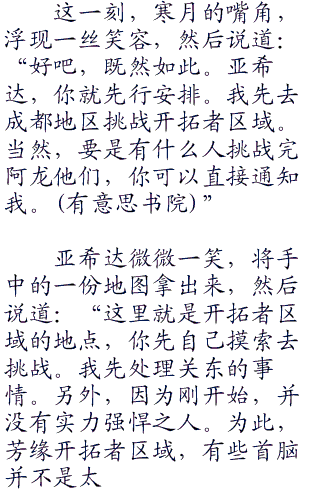 这一刻，寒月的嘴角，
浮现一丝笑容，然后说道：
“好吧，既然如此。亚希
达，你就先行安排。我先去
成都地区挑战开拓者区域。
当然，要是有什么人挑战完
阿龙他们，你可以直接通知
我。(有意思书院)”
亚希达微微一笑，将手
中的一份地图拿出来，然后
说道：“这里就是开拓者区
域的地点，你先自己摸索去
挑战。我先处理关东的事
情。另外，因为刚开始，并
没有实力强悍之人。为此，
芳缘开拓者区域，有些首脑
并不是太